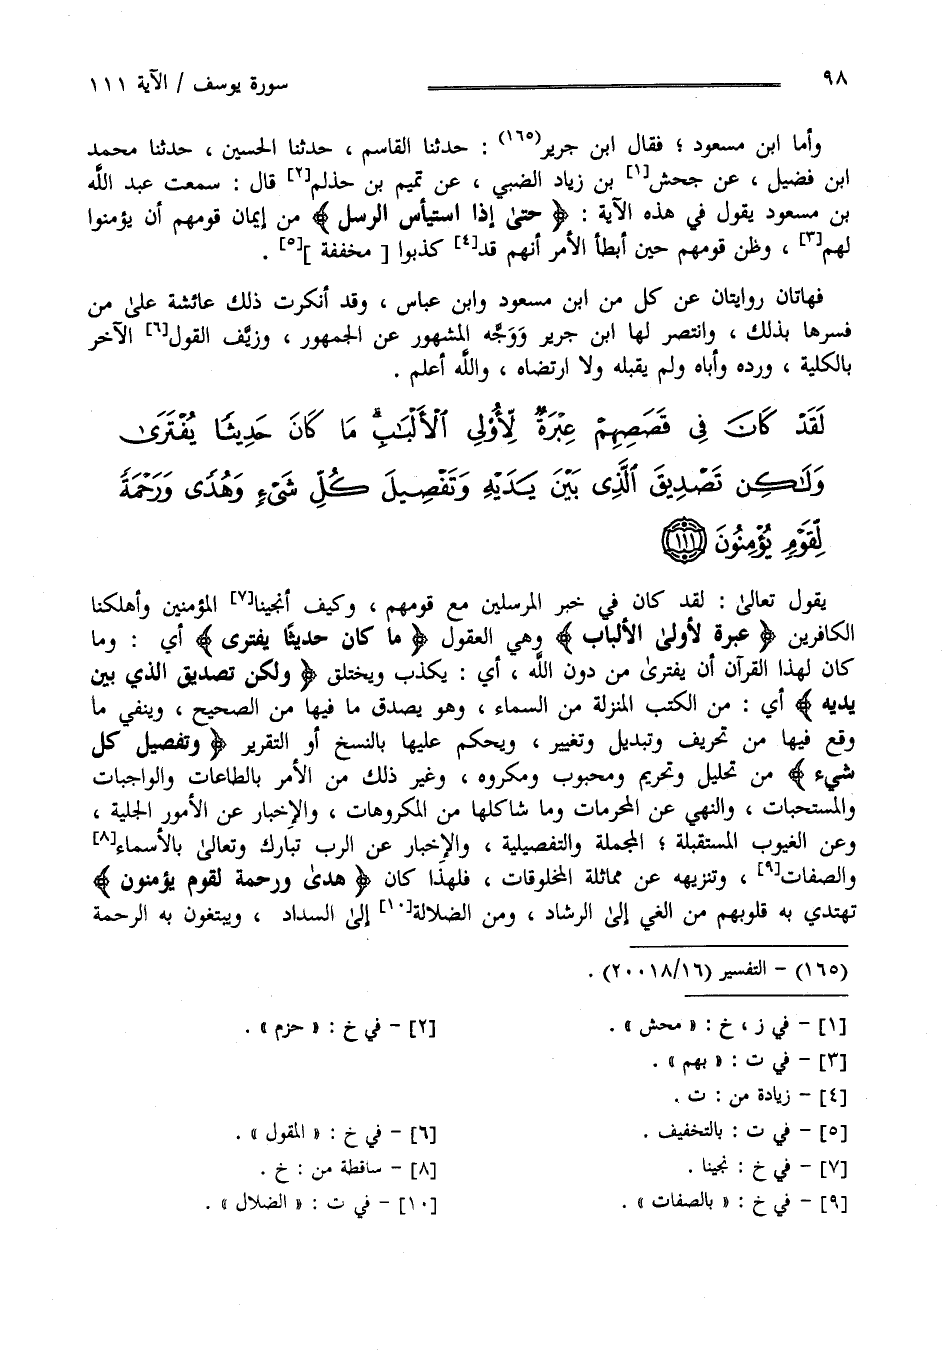 ٩٨
سورة يوسف / الآية ١١١
وأما ابن مسعود ؛ فقال ابن جرير(١٦٥) : حدثنا القاسم ، حدثنا الحسين ، حدثنا محمد
ابن فضيل ، عن جحش[١] بن زياد الضبي ، عن تميم بن حذلم[٢] قال : سمعت عبد اللَّه
بن مسعود يقول في هذه الآية : ﴿ حتىٰ إذا استيأس الرسل ﴾ من إيمان قومهم أن يؤمنوا
لهم[٣] ، وظن قومهم حين أبطأ الأمر أنهم قد[٤] كذبوا [ مخففة ][٥] .
فهاتان روايتان عن كل من ابن مسعود وابن عباس ، وقد أنكرت ذلك عائشة علىٰ من
فسرها بذلك ، وانتصر لها ابن جرير وَوَجَّه المشهور عن الجمهور ، وزيَّف القول[٦] الآخر
بالكلية ، ورده وأباه ولم يقبله ولا ارتضاه ، واللَّه أعلم .
لَقَدْ كَانَ فِي قَصَصِهِمْ عِبْرَةٌ لِّأُوْلِي ٱلْأَلْبَٰبِۗ مَا كَانَ حَدِيثًا يُفْتَرَىٰ
وَلَٰكِن تَصْدِيقَ ٱلَّذِى بَيْنَ يَدَيْهِ وَتَفْصِيلَ كُلِّ شَىْءٍ وَهُدًى وَرَحْمَةً
لِّقَوْمٍ يُؤْمِنُونَ ١١١
يقول تعالىٰ : لقد كان في خبر المرسلين مع قومهم ، وكيف أنجينا[٧] المؤمنين وأهلكنا
الكافرين ﴿ عبرة لأولىٰ الألباب ﴾ وهي العقول ﴿ ما كان حديثًا يفترى ﴾ أي : وما
كان لهذا القرآن أن يفترىٰ من دون اللَّه ، أي : يكذب ويختلق ﴿ ولكن تصديق الذي بين
يديه ﴾ أي : من الكتب المنزلة من السماء ، وهو يصدق ما فيها من الصحيح ، وينفي ما
وقع فيها من تحريف وتبديل وتغيير ، ويحكم عليها بالنسخ أو التقرير ﴿ وتفصيل كل
شيء ﴾ من تحليل وتحريم ومحبوب ومكروه ، وغير ذلك من الأمر بالطاعات والواجبات
والمستحبات ، والنهي عن المحرمات وما شاكلها من المكروهات ، والإخبار عن الأمور الجلية ،
وعن الغيوب المستقبلة ؛ المجملة والتفصيلية ، والإخبار عن الرب تبارك وتعالىٰ بالأسماء[٨]
والصفات[٩] ، وتنزيهه عن مماثلة المخلوقات ، فلهذا كان ﴿ هدىٰ ورحمة لقوم يؤمنون ﴾
تهتدي به قلوبهم من الغي إلىٰ الرشاد ، ومن الضلالة[١٠] إلىٰ السداد ، ويبتغون به الرحمة
(١٦٥) – التفسير (٢٠٠١٨/١٦) .
[١] – في ز ، خ : « محش » .
[٢] – في خ : « حزم » .
[٣] – في ت : « بهم » .
[٤] – زيادة من : ت .
[٥] – في ت : بالتخفيف .
[٦] – في خ : « المقول » .
[٧] – في خ : نجينا .
[٨] – ساقطة من : خ .
[٩] – في خ : « بالصفات » .
[١٠] – في ت : « الضلال » .